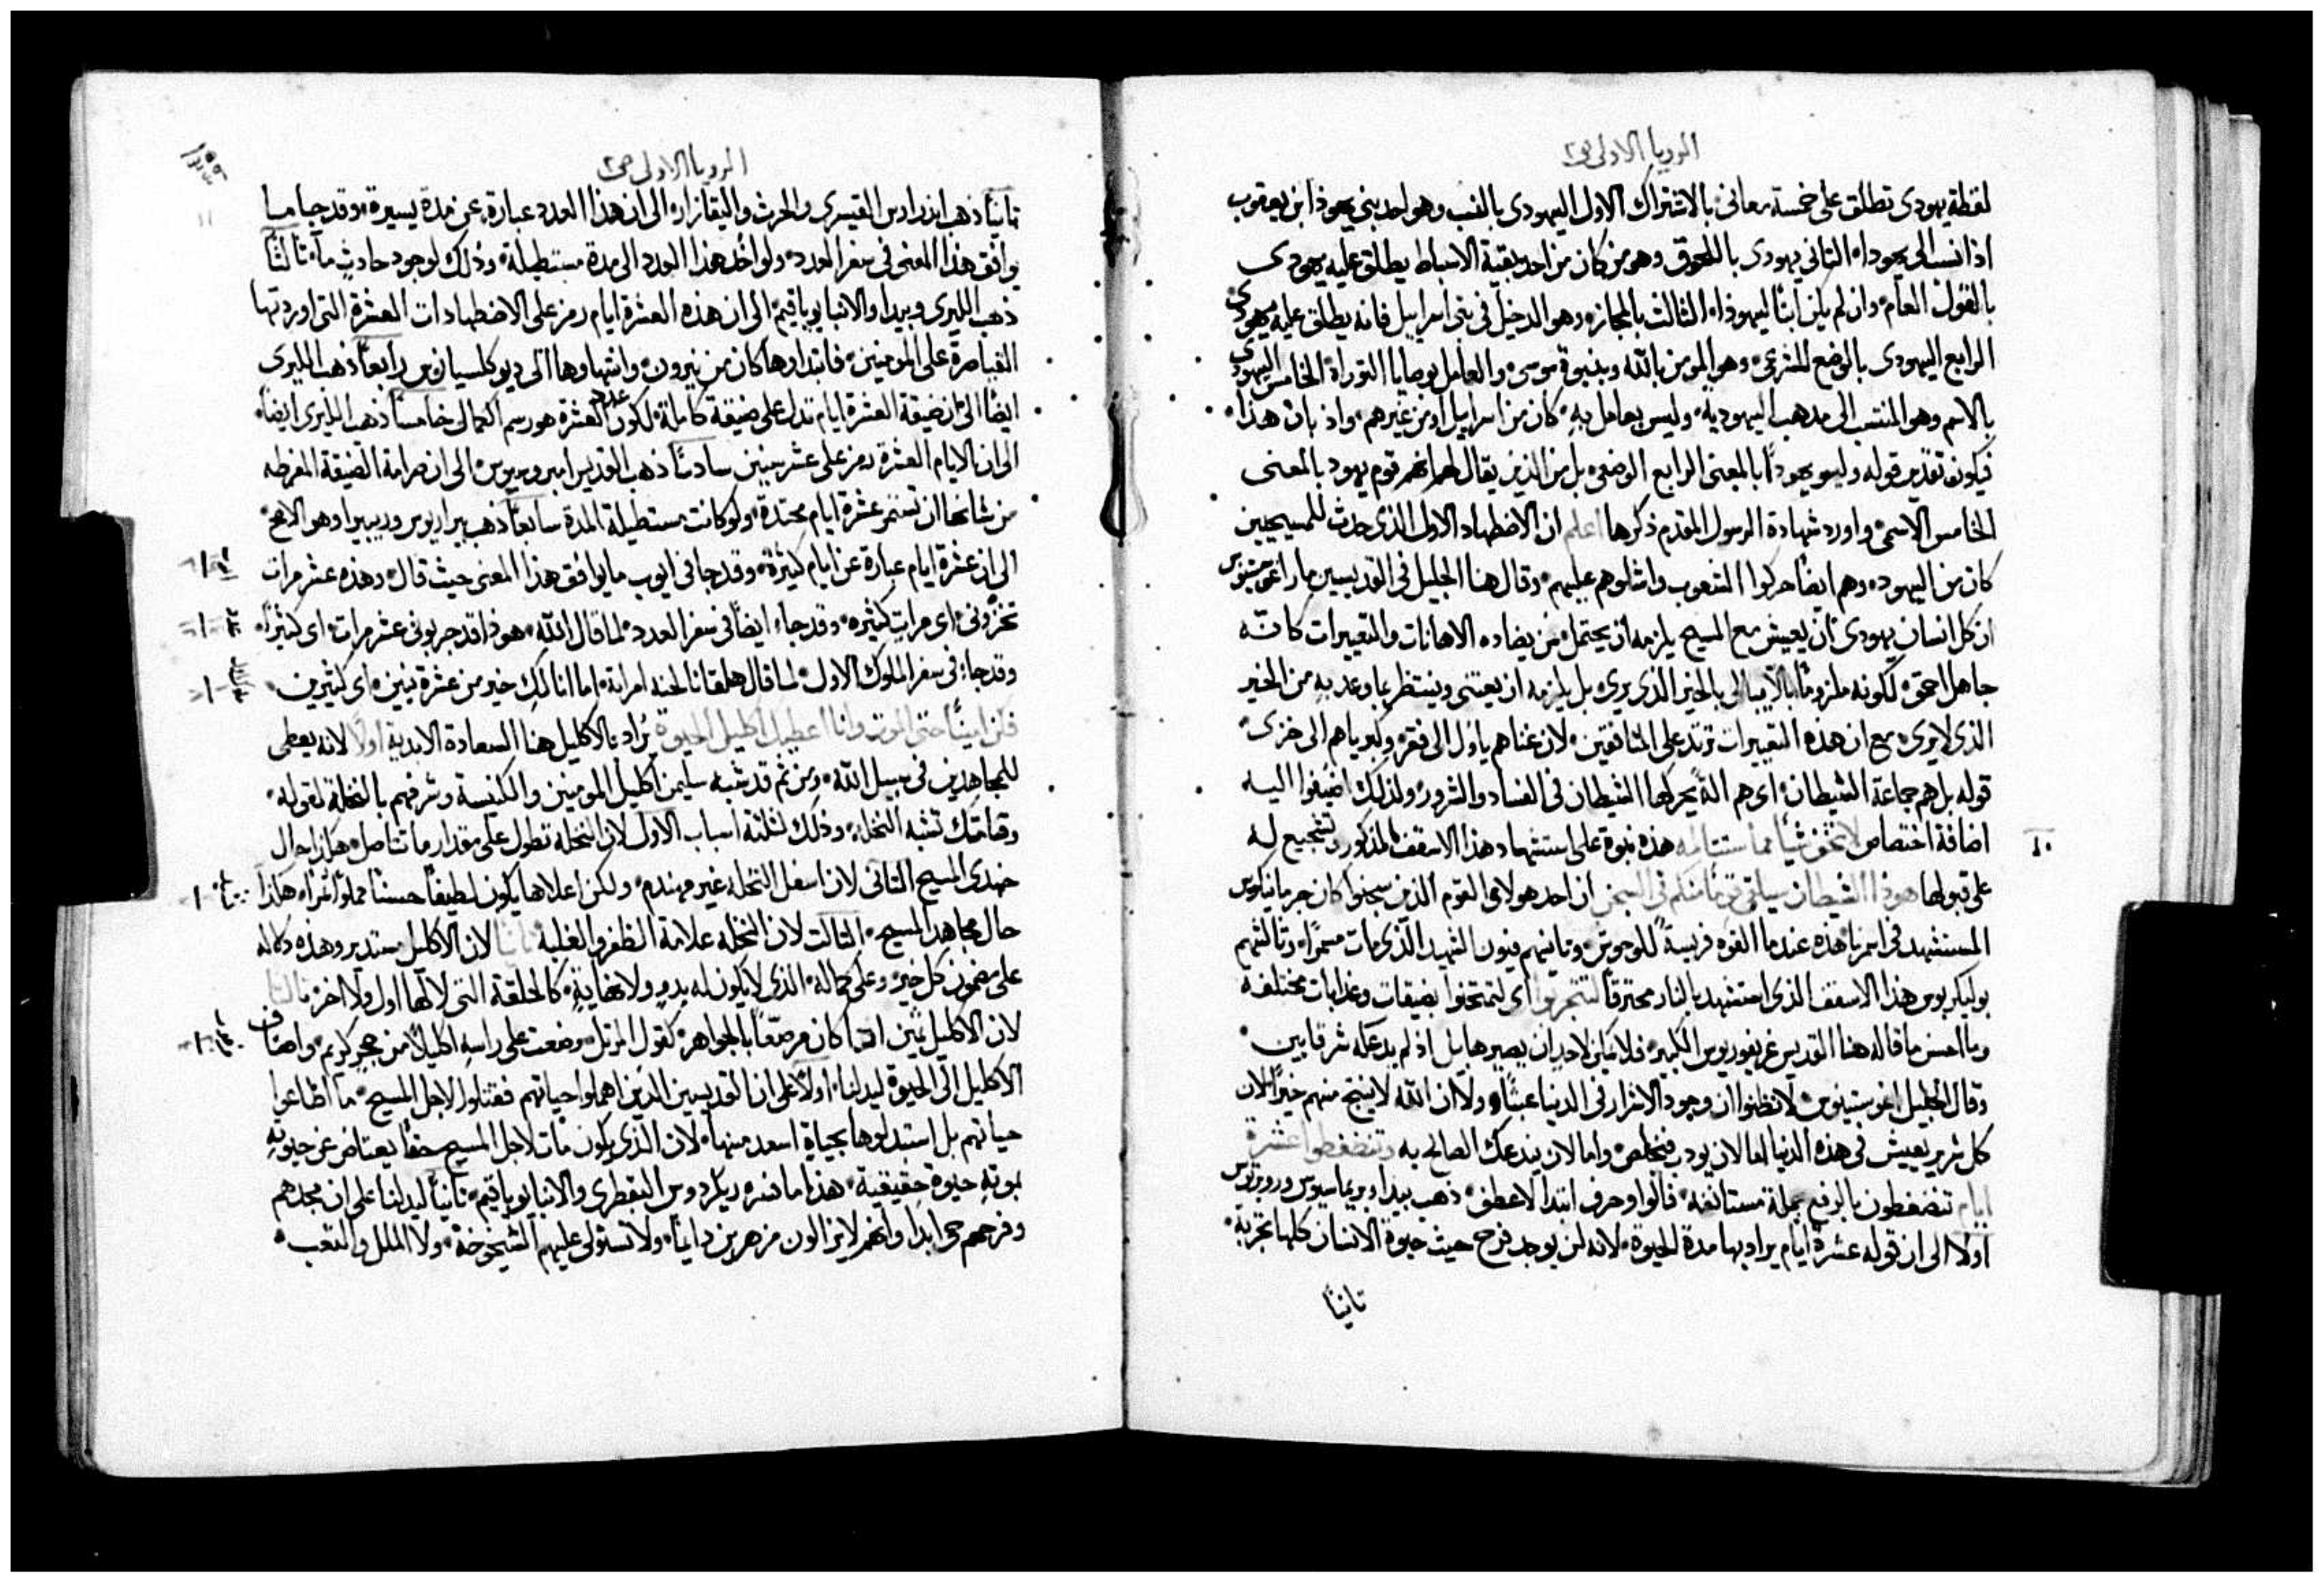 الرويا الاولى ص٢
لفظة يهودى تطلق على خمسة معانى بالاشتراك الاول اليهودى بالنسب وهو احد بني يهوذا ابن يعقوب
اذا نسب الى يهودا. الثاني يهودى باللحوق وهو من كان من احد بقية الاسباط يطلق عليه يهودى
بالقول العام وان لم يكن ابنًا ليهوذا. الثالث بالمجاز. وهو الدخيل في بني اسراييل فانه يطلق عليه يهودى
الرابع اليهودى بالوضع الشرعى وهو المومن بالله وبنبوة موسى والعامل بوصايا التوراة الخامس اليهودى
بالاسم وهو المنتسب الى مذهب اليهودية وليس بعامل به كان من اسراييل او من غيرهم واذ بان هذا
فيكون تقدير قوله وليسو يهودًا بالمعنى الرابع الوضعى بل من الذين يقال لهم انهم قوم يهود بالمعنى
الخامس الاسمى واورد شهادة الرسول المقدم ذكرها اعلم ان الاضطهاد الاول الذى حدث للمسيحيين
كان من اليهود وهم ايضًا حركوا الشعوب واشلوهم عليهم وقال هنا الجليل في القديسين مار اغوستينوس
ان كل انسان يهودى ان يعيش مع المسيح يلزمه ان يحتمل من يضاده الاهانات والتعييرات كانه
جاهل احمق لكونه ملزومًا بالا يبالى بالخير الذى يرى بل يلزمه ان يعتني وينتظر بما وعد به من الخير
الذى لا يرى مع ان هذه التعييرات ترتد على المنافقين لان غناهم ياول الى فقر وكبرياهم الى خزى
قوله بل هم جماعة الشيطان اى هم الة يحركها الشيطان في الفساد والشرور ولذلك اضيفوا اليه
اضافة اختصاص لا تخف شيًا مما ستتالمه هذه نبوة على استشهاد هذا الاسقف المذكور وتشجيع له
١٠
على قبولها هوذا الشيطان سيلقى قومًا منكم في السجن ان احد هولاى القوم الذين سجنوا كان جرمانيكوس
المستشهد في ازمرنا هذه عندما القوه فريسةً للوحوش وثانيهم فيون الشهيد الذى مات مسمرًا وثالثهم
بوليكربوس هذا الاسقف الذى استشهد بالنار محترقًا لتتجربوا اى لتمتحنوا بضيقات وعذابات مختلفة
وما احسن ما قاله هنا القديس غريغوريوس الكبير فلا يمكن لاحد ان يصير هابيل اذ لم يدعكه شر قايين
وقال الجليل اغوستينوس لا تظنوا ان وجود الاشرار في الدنيا عبثًا ولا ان الله لا ينتج منهم خيرًا لان
كل شرير يعيش في هذه الدنيا اما لان يودب فيخلص واما لان يندعك الصالح به وتنضغطوا عشرة
ايام تنضغطون بالرفع جملة مستانفة قالوا وحرف ابتدا لا عطف ذهب بيدا وبريماسيوس وروبرتوس
اولًا الى ان قوله عشرة ايام يراد بها مدة الحيوة لانه لن يوجد فرح حيث حيوة الانسان كلها تجربة
ثانيًا
الرويا الاولى ص٢
١١
ثانيًا ذهب اندراوس القيسرى والحرث واليقازار الى ان هذا العدد عبارة عن مدة يسيرة وقد جا ما
يوافق هذا المعنى في سفر العدد ولو اخذ هذا العدد الى مدة مستطيلة وذلك لوجود حادثٍ ما ثالثًا
ذهب الليرى وبيدا والانبا يوياقيم الى ان هذه العشرة ايام رمز على الاضطهادات العشرة التى اوردتها
القياصرة على المومنين فابتداوها كان من نيرون وانتهاوها الى ديوكلسيانوس رابعًا ذهب الليرى
ايضًا الى ان ضيقة العشرة ايام تدل على ضيقة كاملة لكون عدد العشرة هو رسم الكمال خامسًا ذهب الليرى ايضًا
الى ان الايام العشرة رمز على عشر سنين سادسًا ذهب القديس امبروسيوس الى ان صرامة الضيقة المفرطه
من شانها ان تستمر عشرة ايام محتدة ولو كانت مستطيلة المدة سابعًا ذهب بيراريوس وريبيرا وهو الاصح
الى ان عشرة ايام عبارة عن ايام كثيرة وقد جا في ايوب ما يوافق هذا المعنى حيث قال وهذه عشر مرات
تخزونى اى مرات كثيره وقد جاء ايضًا في سفر العدد لما قال الله هوذا قد جربونى عشر مرات اى كثيرًا
وقد جاء في سفر الملوك الاول لما قال هلقانا لحنه امراته اما انا لكِ خير من عشرة بنين اى كثيرين
فكن امينًا حتى الموت وانا اعطيك اكليل الحيوة يُراد بالاكليل هنا السعادة الابدية اولًا لانه يعطى
للمجاهدين في سبيل الله ومن ثم قد شبه سليمن اكليل المومنين والكنيسة وشرفهم بالنخلة لقوله
وقامتك تشبه النخلة وذلك لثلثة اسباب الاول لان النخله تطول على مقدار ما تتاصل هكذا حال
جندى المسيح الثانى لان اسفل النخله غير مهندم ولكن اعلاها يكون لطيفًا حسنًا مملوًا ثمرًا هكذا
حال مجاهد المسيح الثالث لان النخله علامة الظفر والغلبة ثانيًا لان الاكليل مستدير وهذه دلاله
على مضمون كل خير وعلى كماله الذى لا يكون له بدو ولا نهاية كالحلقة التى لا لها اول ولا اخر ثالثًا
لان الاكليل ثمين كان مرصعًا بالجواهر كقول المرتل وضعت على راسه اكليلًا من حجر كريم واضاف
الاكليل الى الحيوة ليدلنا اولًا على ان القديسين الذين اهملوا حياتهم فقتلوا لاجل المسيح ما اضاعوا
حياتهم بل استبدلوها بحياة اسعد منها لان الذى يكون مات لاجل المسيح حقًا يعتاض عن حيوته
بموته حيوة حقيقية هذا ما فسره ريكردوس البقطرى والانبا يوياقيم ثانيًا ليدلنا على ان مجدهم
وفرحهم حى ابدًا وانهم لا يزالون مزهرين دايمًا ولا تستولى عليهم الشيخوخة ولا الملل والتعب